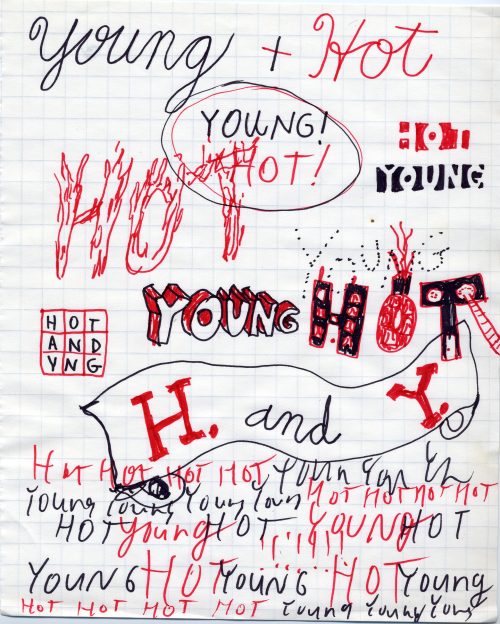 Young + Hot
YOUNG!
HOT!
HOT
HOT
YOUNG
YOUNG
YOUNG
HOT
HOT
AND
YNG
H. and Y.
Hot HOT HOT HOT Youn You Yn
Young Young Young Youn HOT HOT HOT HOT
HOT Young HOT YOUNG HOT
YOUNG HOT YOUNG HOT Young
HOT HOT HOT HOT Young Young Young